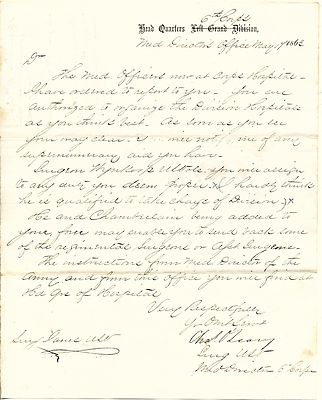 6th Corps
Head Quarters Left Grand Division,
Med Directors Office May 1863
Dr
The Med. Officers now at Corps Hospital
I have ordered to report to you - You are
authorized to organize the Division Hospitals
as you think best. As soon as you see
your way clear you will notify me of any
supernumerary aid you have.
Surgeon Wynkoop U Vols. you will assign
to any duty you deem proper x(I hardly think
he is qualified to take charge of Division)x
He and Chamberlain being added to
your force may enable you to send back some
of the regimental Surgeons or Asst Surgeons.
The instructions from Med Director of the
Army and from this office you will find at
Hd Qrs of Hospital
Very Respectfully
Yr Obt Servt
Chas O'Leary
Surg USV
Med Director 6th Corps
Surg USV